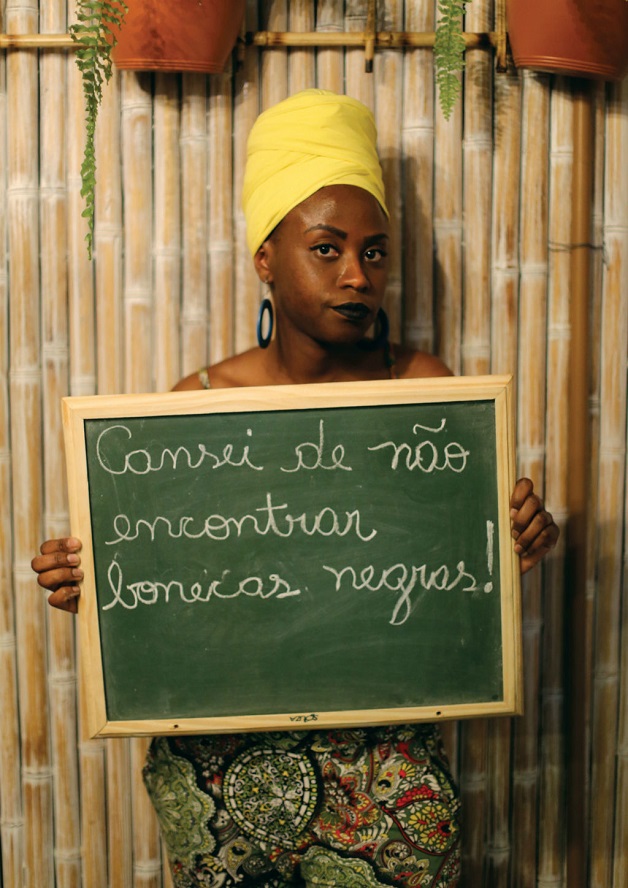 Cansei de não
encontrar
bonecas negras!